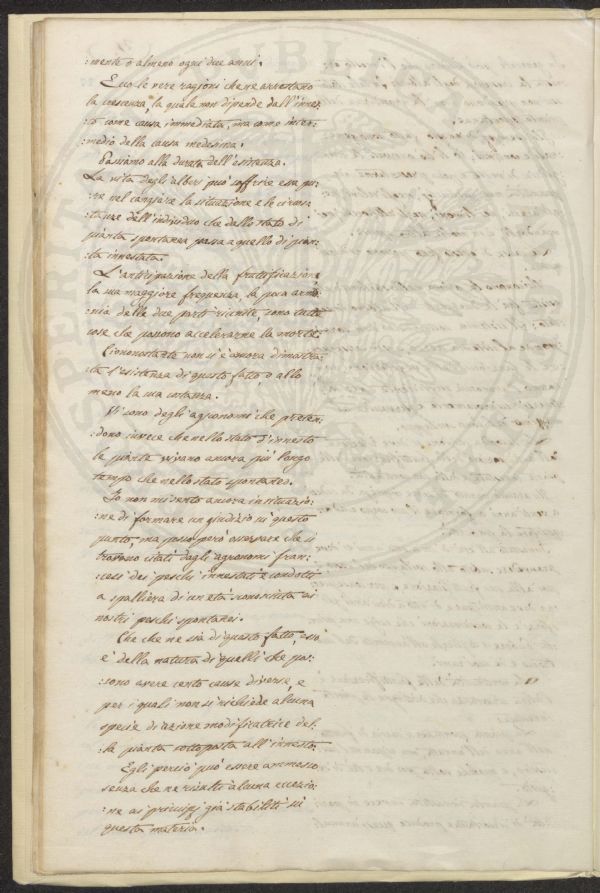 :mente o almeno ogni due anni.
Ecco le vere ragioni che ne arrestano
la crescenza, la quale non dipende dall'innes-
:to come causa immediata, ma come inter-
:medio della causa medesima.
Passiamo alla durata dell'esistenza.
La vita degli alberi può soffrire essa pu:
:re nel cangiare la situazione e le circos:
:tanze dell'individuo che dallo stato di
pianta spontanea passa a quello di pian:
:ta innestata.
L'anticipazione della fruttificazione,
la sua maggiore frequenza, la poca armo:
:nia delle due parti riunite, sono tutte
cose che possono accelerarne la morte.
Ciononostante non si è ancora dimostra:
:ta l'esistenza di questo fatto, o allo
meno la sua costanza.
Vi sono degli agronomi che preten:
:dono invece che nello stato d'innesto
le piante vivano ancora più lungo
tempo che nello stato spontaneo.
Io non mi sento ancora in situazio:
:ne di formare un giudizio su questo
punto, ma posso però osservare che si
trovano citati dagli agronomi fran:
:cesi dei peschi innestati e condotti
a spalliera di un'età sconosciuta ai
nostri peschi spontanei.
Che che ne sia di questo fatto, esso
è della natura di quelli che pos:
:sono avere cento cause diverse, e
per i quali non si richiede alcuna
specie di azione modificatrice del:
:la pianta sottoposta all'innesto.
Egli perciò può essere ammesso
senza che ne risulti alcuna eccezio:
:ne ai principj già stabiliti su
questa materia.